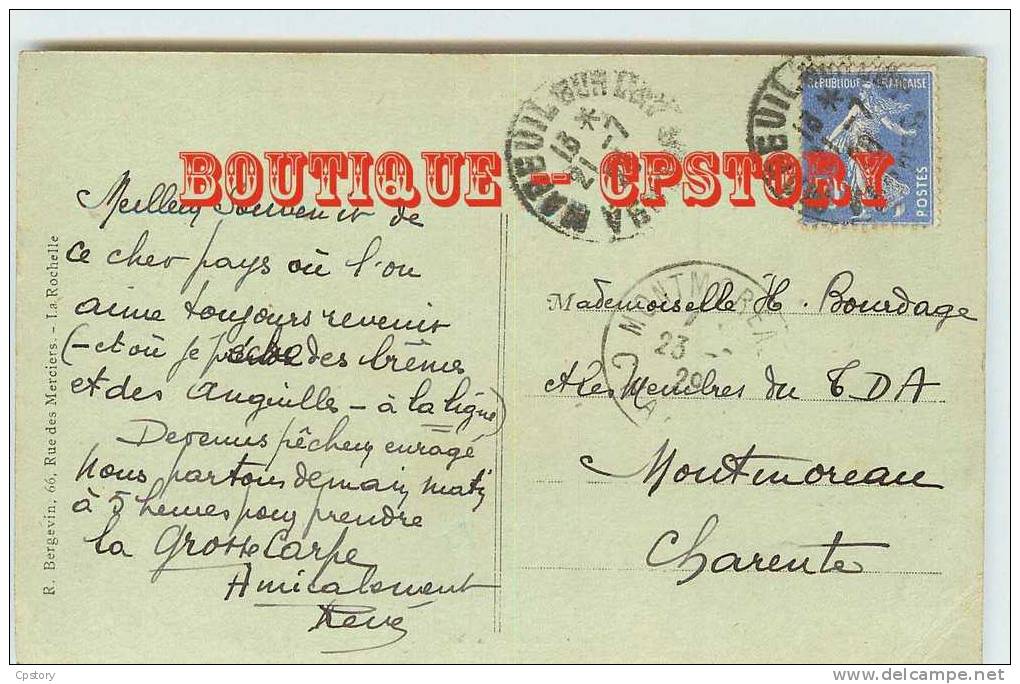 BOUTIQUE - CPSTORY
MAREUIL SUR LAY
18 *
21 -7
REPUBLIQUE FRANÇAISE
POSTES
Meilleur Souvenir de
ce cher pays où l'on
aime toujours revenir
(- et où je pêche des brêmes
et des anguilles - à la ligne)
Devenus pêcheur enragé
Nous partons demain matin
à 5 heures pour prendre
la Grosse Carpe
Amicalement
René
R. Bergevin, 66, Rue des Merciers - La Rochelle
MONTMOREAU
23 -
29
Mademoiselle H. Bourdage
& les Membres du T D A
Montmoreau
Charente
Cpstory
delcampe.net